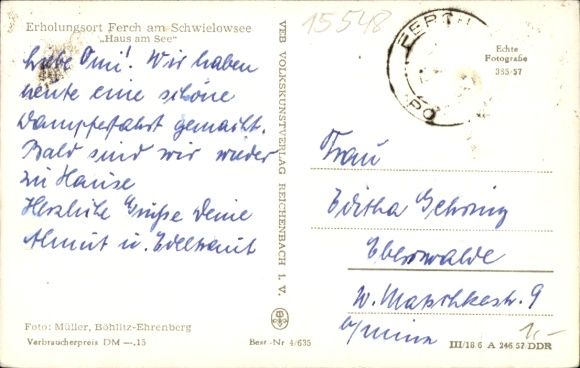 Erholungsort Ferch am Schwielowsee
„Haus am See“
Liebe Omi! Wir haben
heute eine schöne
Dampferfahrt gemacht.
Bald sind wir wieder
zu Hause
Herzliche Grüße Deine
Almut u. Edeltraut
Foto: Müller, Böhlitz-Ehrenberg
Verbraucherpreis DM —.15
Best-Nr 4/635
VEB VOLKSKUNSTVERLAG REICHENBACH I. V.
15548
FERCH
Echte
Fotografie
365-57
Frau
Editha Gehring
Eberswalde
W. Matschkestr. 9
III/18 6 A 246 57 DDR
1,-